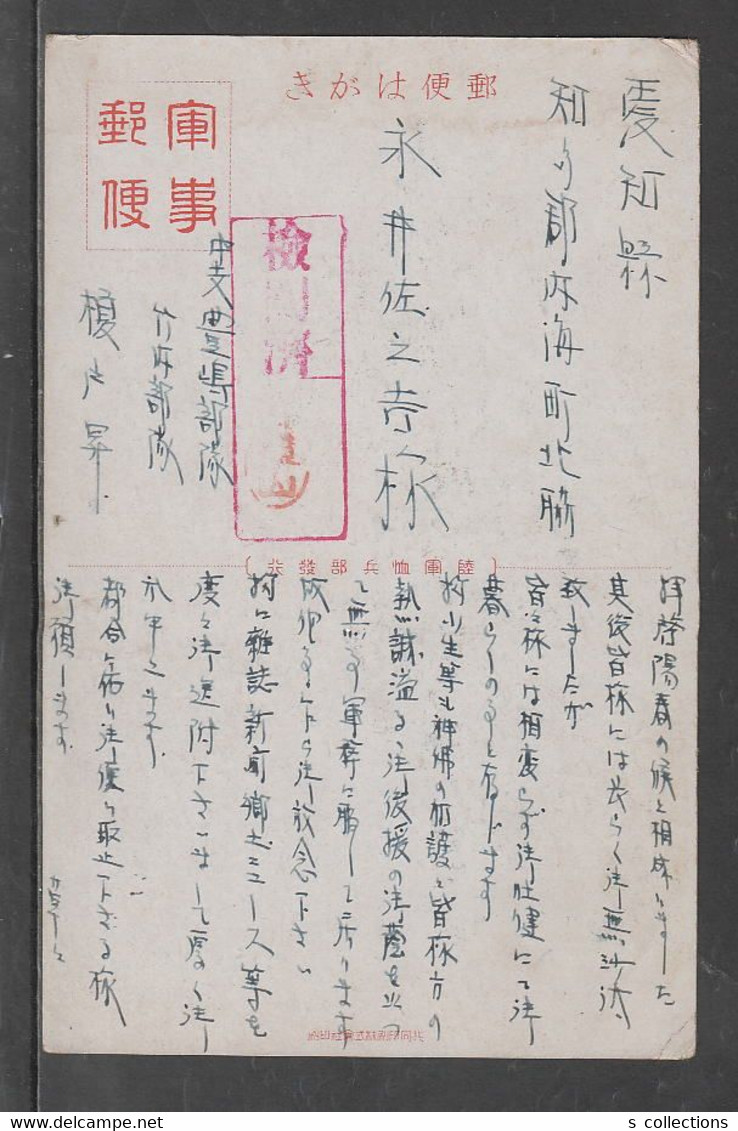 郵便はがき
軍事郵便
檢閲濟
愛知縣
知多郡内海町北脇
永井佐之吉様
中支豊嶋部隊
竹内部隊
榎戸昇
〔陸軍恤兵部發行〕
拝啓陽春の候と相成りました
其後皆様には長らく御無沙汰
致しましたが
皆々様には相変らず御壮健にて御
暮らしの事と存じます
拙小生等も神佛の加護と皆様方の
熱誠溢る御後援の御蔭を以つ
て無事軍務に服して居ります
故他事 御放念下さい
雑誌新聞郷土ニュース等を
度々御送附下さいまして厚く御
礼申します
都合に依り御便り取止下さる様
御願します
草々
共同印刷株式會社印刷
s collections